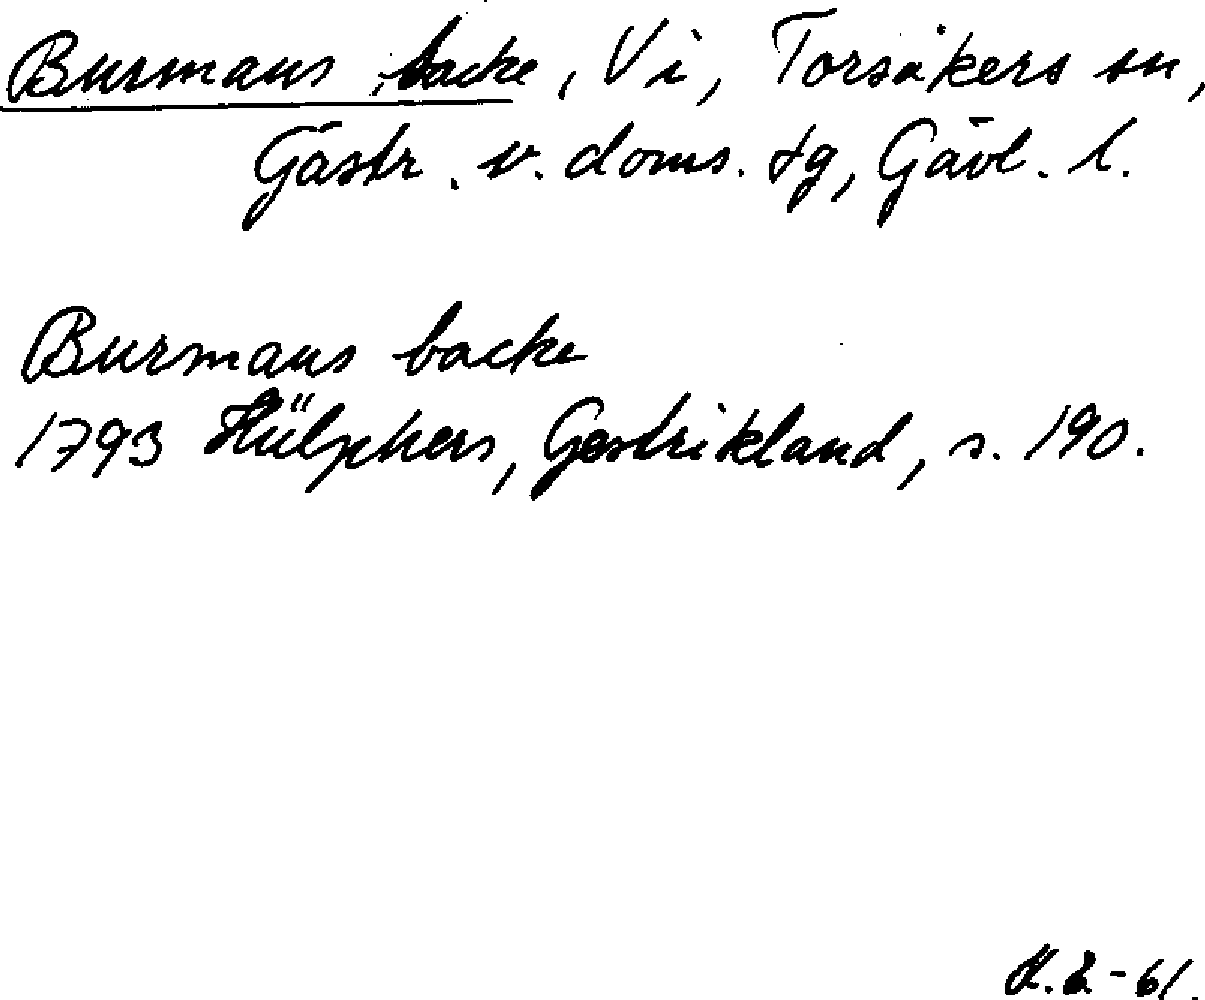 Burmans backe, Vi, Torsåkers sn,
Gästr. v. doms. tg, Gävl. l.
Burmans backe
1793 Hülphers, Gestrikland, s. 190.
-61.